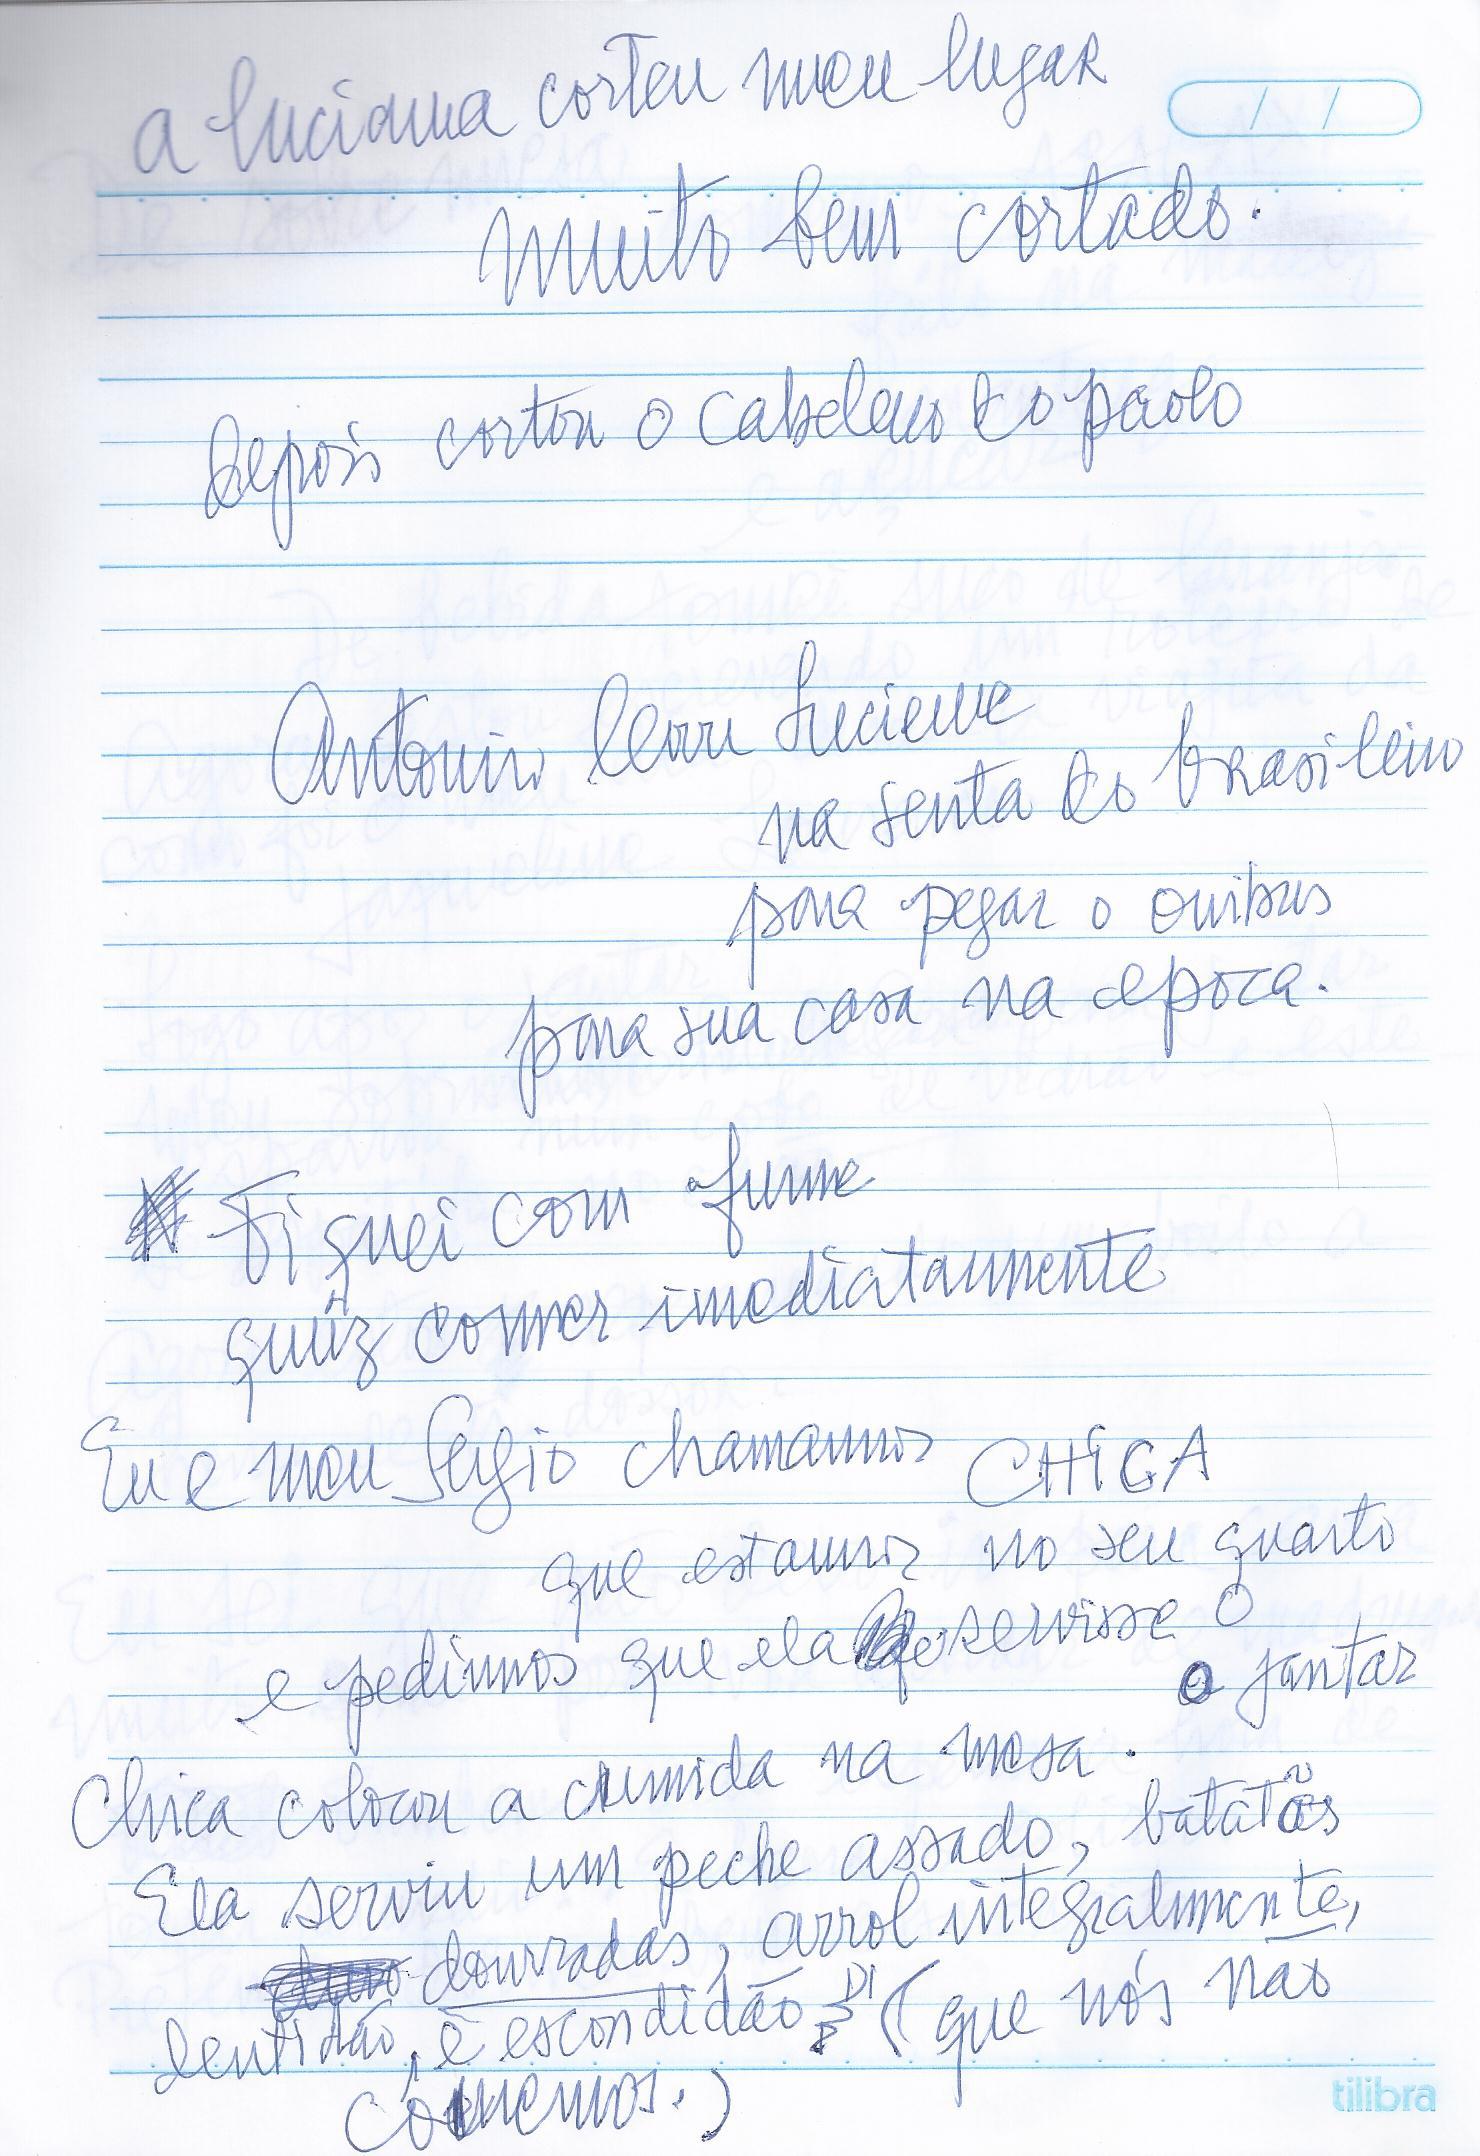 a luciana corteu meu lugar
muito bem cortado.
Depois cortou o cabeleuo do paolo
Antonino levou Lucieme
na senta do brasileiro
para pegar o onibus
para sua casa na epoca.
Fiquei com a fume
quiz commer imediatamente
Eu e meu Sergio chamamos CHICA
que estamos no seu quarto
e pedimos que ela servisse o
o jantar
Chica colocou a cumida na mesa.
Ela serviu um peche assado, batatãs
dourradas, arrol integralmente,
lentidão, e escondidão (que nós não
comemos.)
tilibra